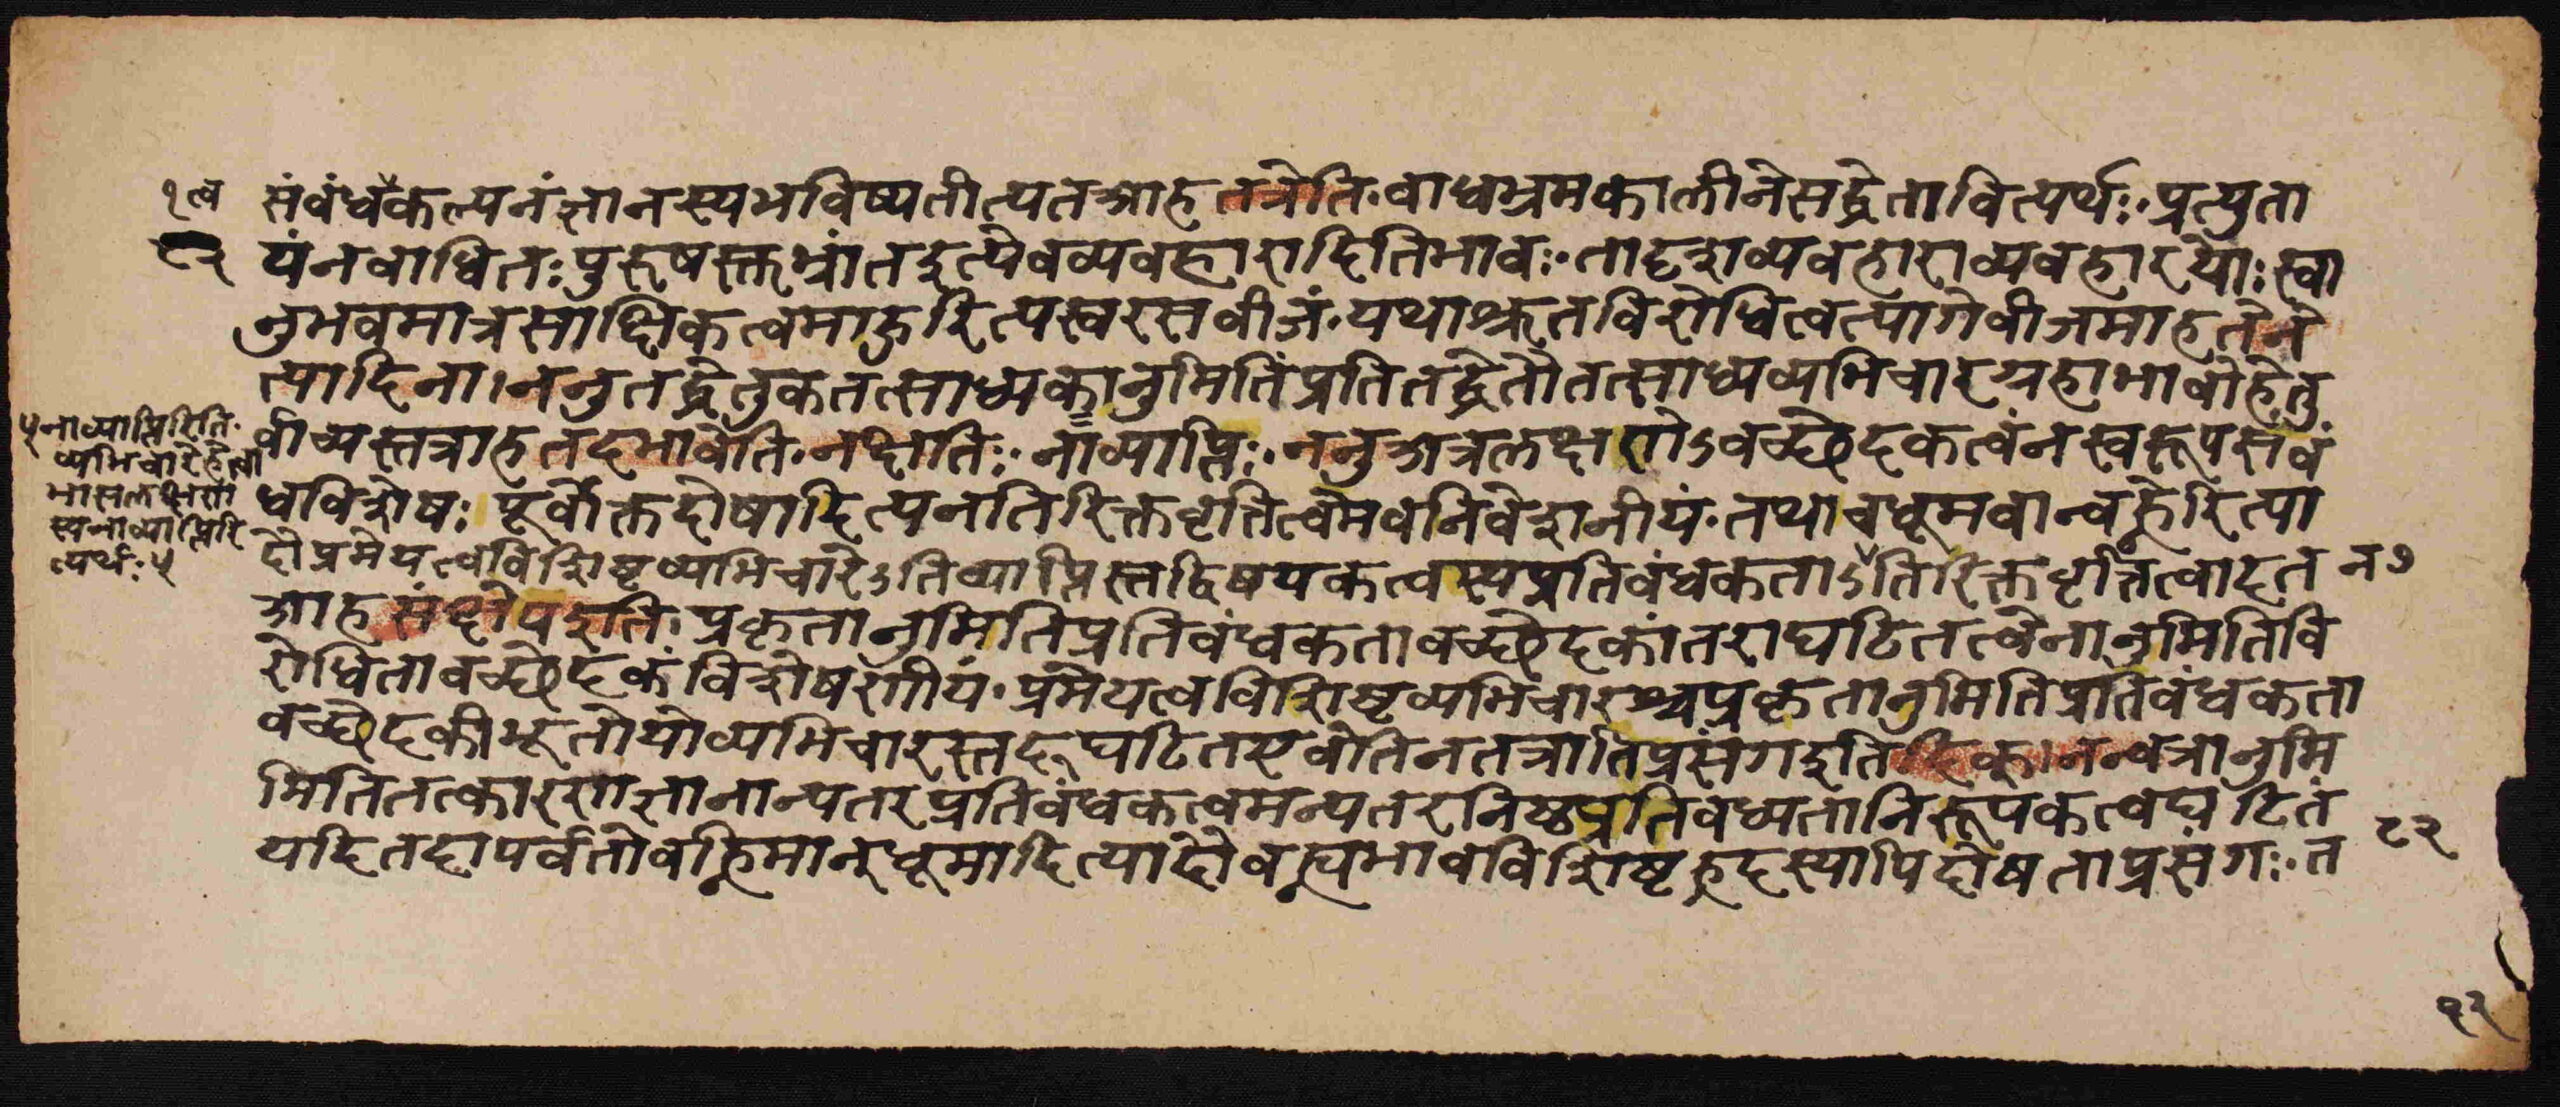 १त्व
८२
संवंधकल्पनंज्ञानस्यभविष्यतीत्यतआहतत्रेति॰वाधभ्रमकालीनेसद्धेतावित्यर्थः॰प्रत्युता
यंनवाधितःपुरुषस्तुभ्रांतइत्येवव्यवहारादितिभावः॰तादृशव्यवहाराव्यवहारयोःस्वा
नुभवमात्रसाक्षिकत्वमाहुरित्यस्वरसवीजं॰यथाश्रुतविरोधित्वत्यागेवीजमाहतेने
त्यादिना।ननुतद्धेतुकतत्साध्यकानुमितिंप्रतितद्धेतौतत्साध्यव्यभिचारग्रहाभावोहेतु
र्वाच्यस्तत्राहतदभावेति॰नक्षतिः॰नाव्याप्तिः॰ननुअत्रलक्षणेऽवच्छेदकत्वंनस्वरूपसंवं
धविशेषःपूर्वोक्तदोषादित्यनतिरिक्तवृत्तित्वमेवनिवेशनीयं॰तथाचधूमवान्वह्नेरित्या
दौप्रमेयत्वविशिष्टव्यभिचारेऽतिव्याप्तिस्तद्विषयकत्वस्यप्रतिवंधकताऽतिरिक्तवृत्तित्वादत
आहसंक्षेपइति॰प्रकृतानुमितिप्रतिवंधकतावच्छेदकांतराघटितत्वेनानुमितिवि
रोधितावच्छेदकंविशेषणीयं॰प्रमेयत्वविशिष्टव्यभिचारश्चप्रकृतानुमितिप्रतिवंधकता
वच्छेदकीभूतोयोव्यभिचारस्तद्रूपघटितएवेतिनतत्रातिप्रसंगइतिदिक्।नन्वत्रानुमि
मितितत्कारणज्ञानान्यतरप्रतिवंधकत्वमन्यतरनिष्ठप्रतिवध्यतानिरूपकत्वघटितं
यदितदापर्वतोवह्निमान्धूमादित्यादौवह्न्यभावविशिष्टह्रदस्यापिदोषताप्रसंगः॰त
५नाव्याप्तिरिति॰
व्यभिचारेहेत्वा
भासलक्षणा
स्यनाव्याप्तिरि
त्यर्थः५
न७
८२